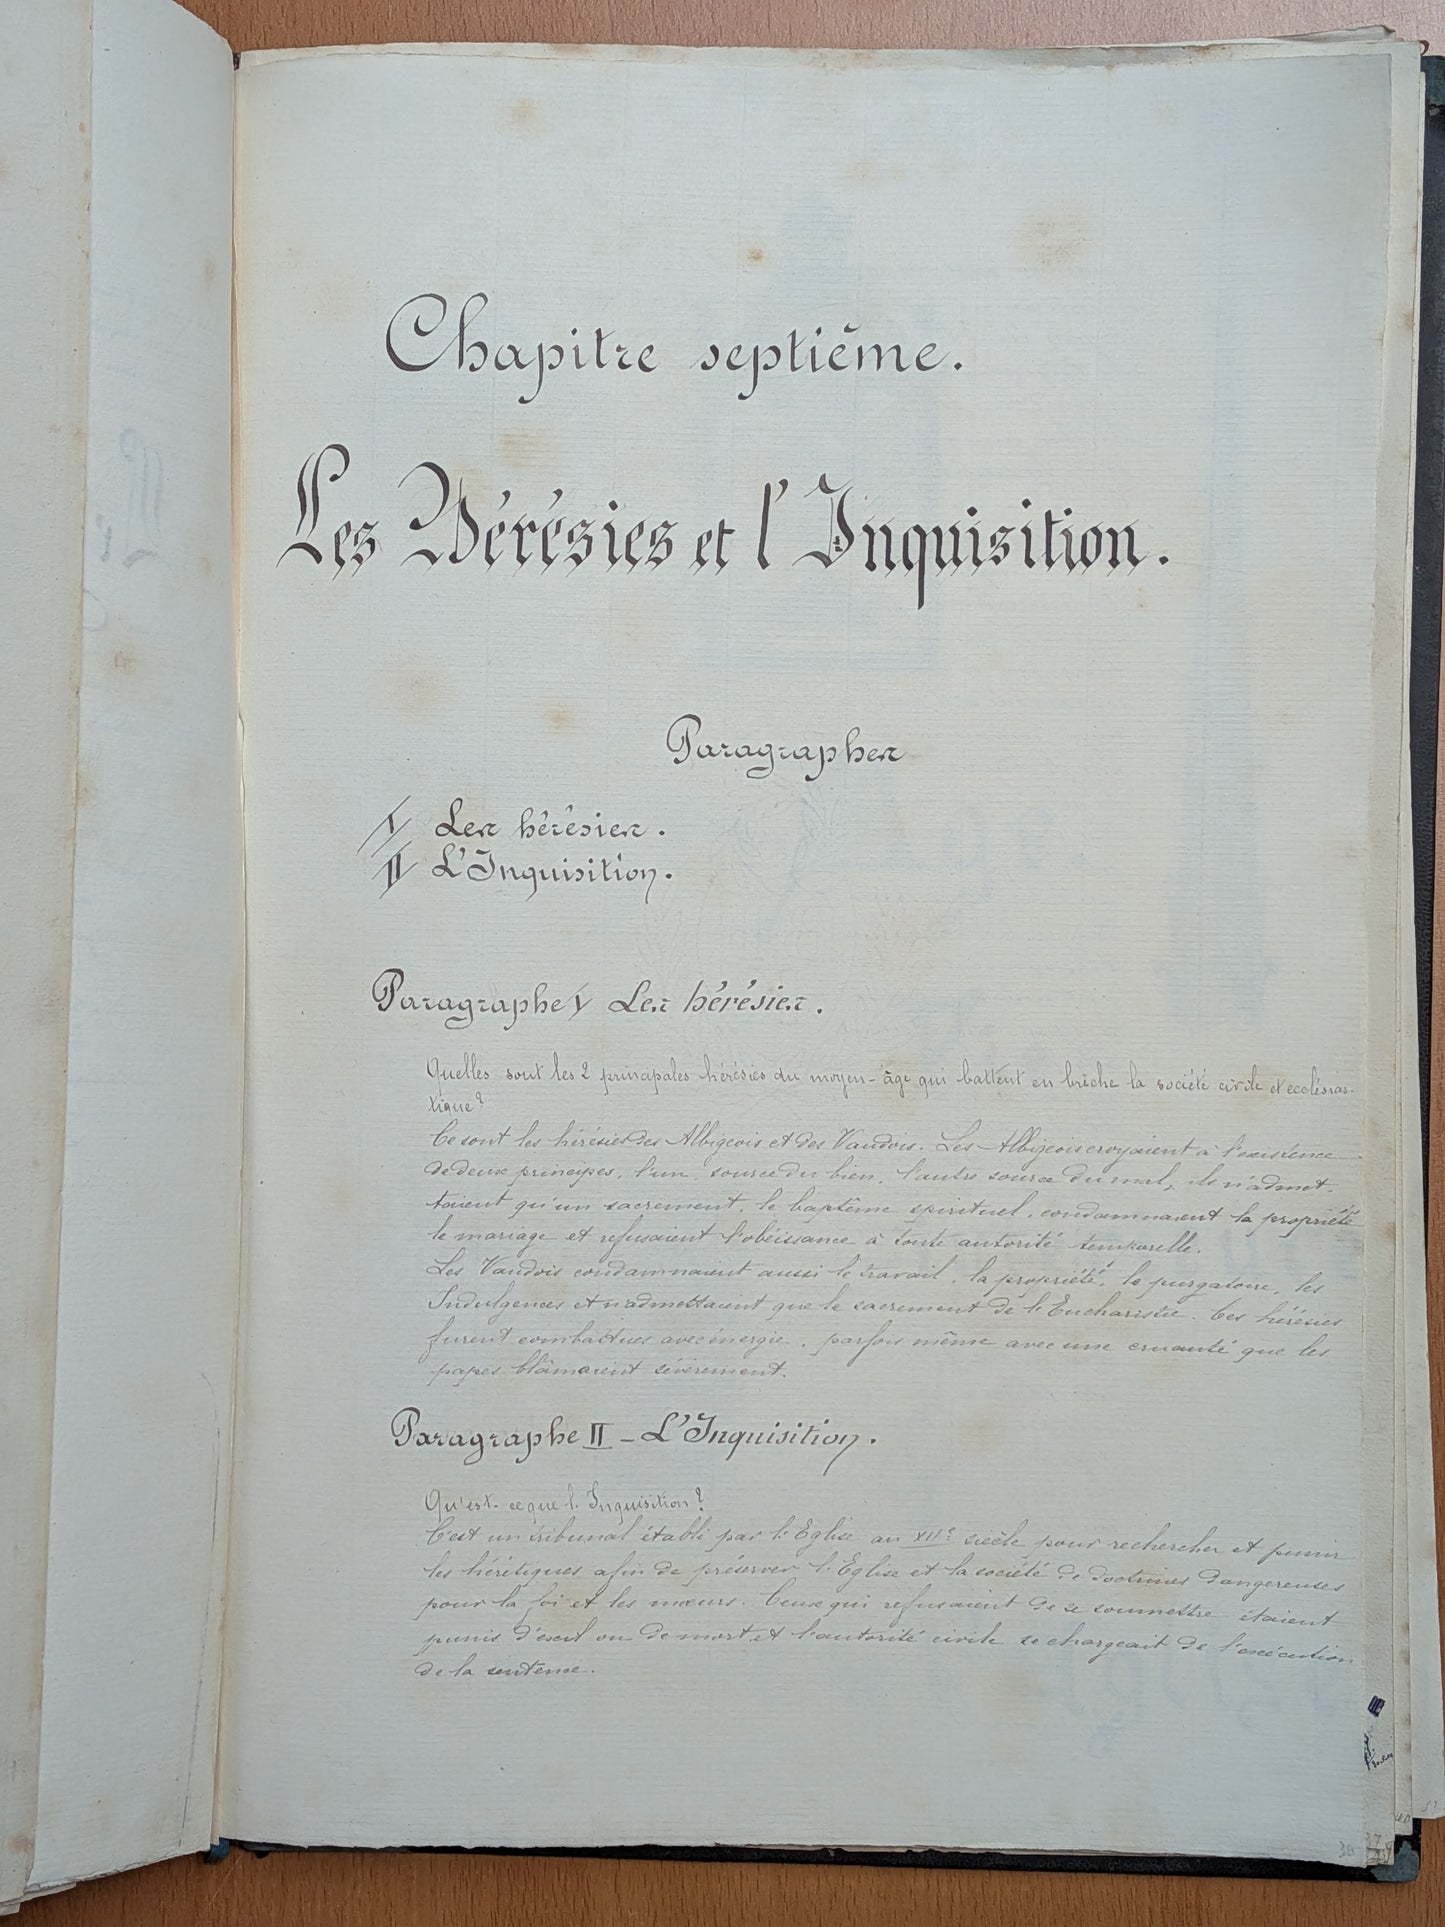 Chapitre septième.
Les Hérésies et l'Inquisition.
Paragraphes
I Les hérésies.
II L'Inquisition.
Paragraphe I Les hérésies.
Quelles sont les 2 principales hérésies du moyen-âge qui battent en brèche la société civile et ecclésias-
tique?
Ce sont les hérésies des Albigeois et des Vaudois. Les Albigeois croyaient à l'existence
de deux principes, l'un, source du bien, l'autre source du mal, ils n'admet-
taient qu'un sacrement, le baptême spirituel, condamnaient la propriété
le mariage et refusaient l'obéissance à toute autorité temporelle.
Les Vaudois condamnaient aussi le travail, la propriété, le purgatoire, les
Indulgences et n'admettaient que le sacrement de l'Eucharistie. Ces hérésies
furent combattues avec énergie, parfois même avec une cruauté que les
papes blâmaient sévèrement.
Paragraphe II - L'Inquisition.
Qu'est-ce que l'Inquisition?
C'est un tribunal établi par l'Eglise au XIIe siècle pour rechercher et punir
les hérétiques afin de préserver l'Eglise et la société de doctrines dangereuses
pour la foi et les mœurs. Ceux qui refusaient de se soumettre étaient
punis d'exil ou de mort et l'autorité civile se chargeait de l'exécution
de la sentence.
36